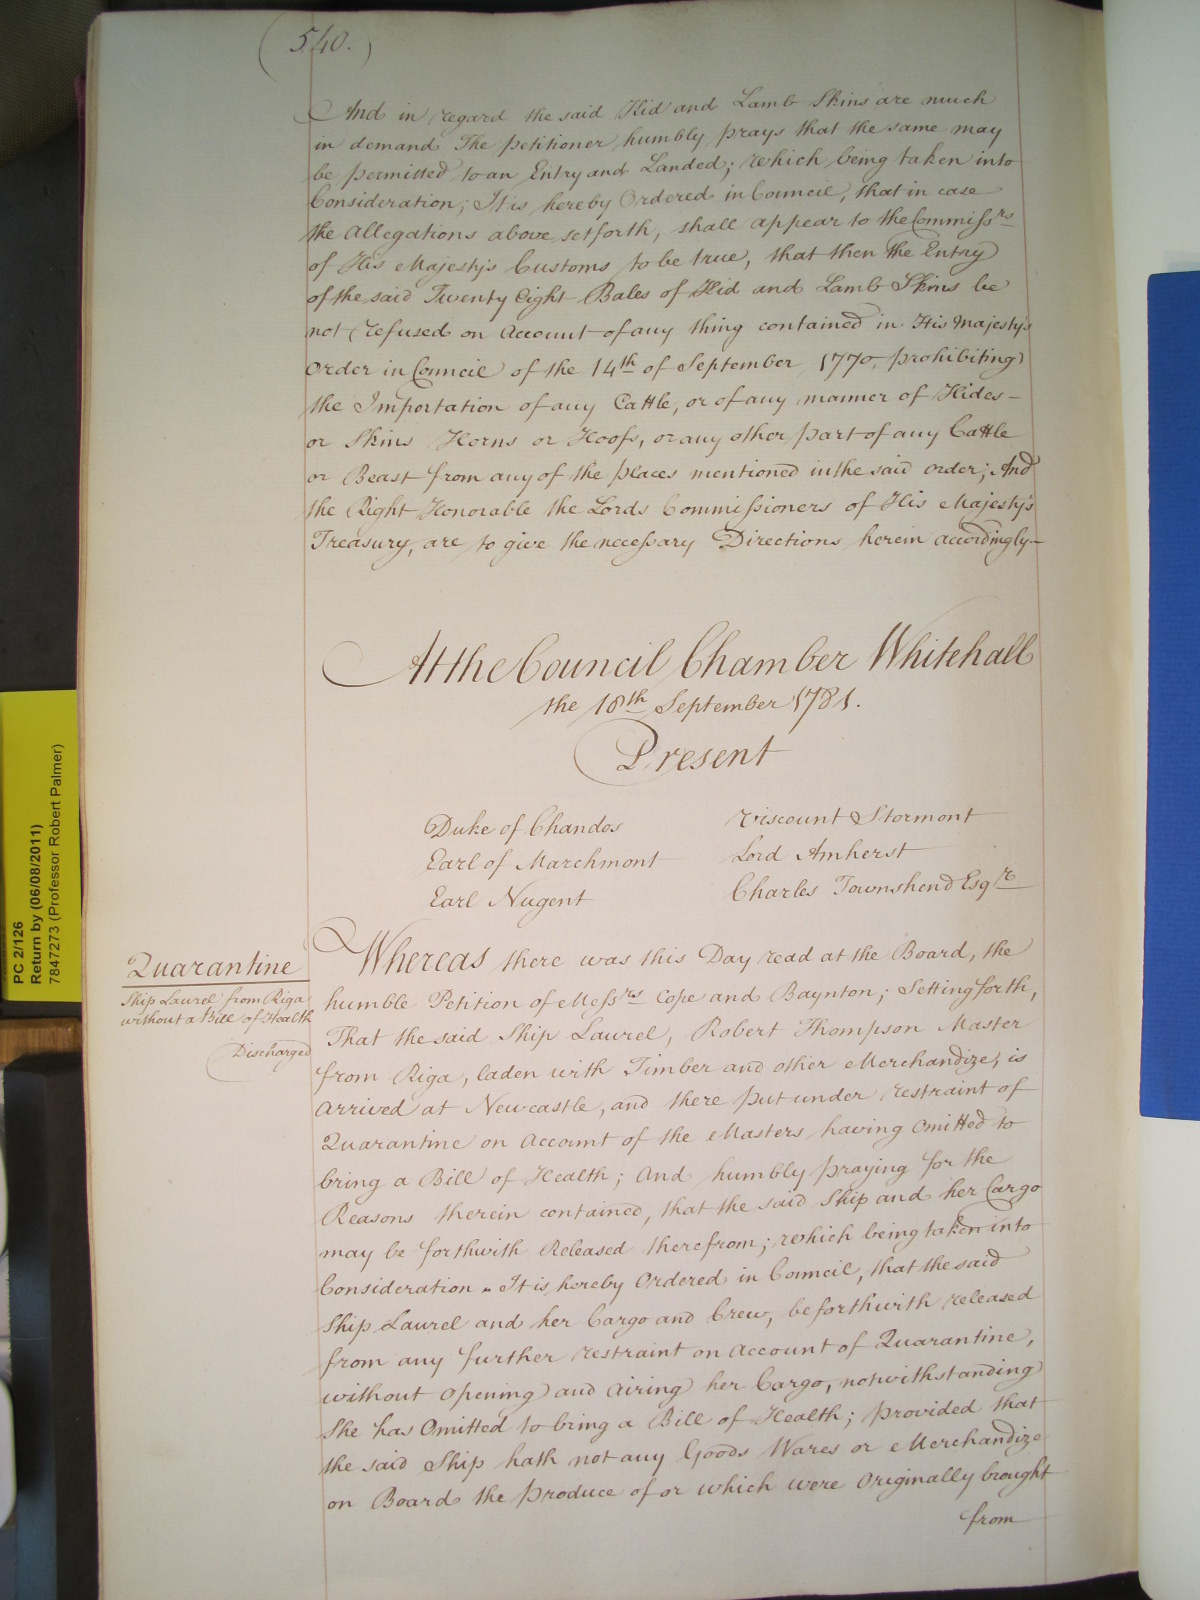 (540.)
And in regard the said Kid and Lamb Skins are much
in demand The petitioner humbly prays that the same may
be permitted to an Entry and Landed; which being taken into
Consideration; It is hereby Ordered in Council, that in case
the Allegations above setforth, shall appear to the Commissrs
of His Majesty's Customs to be true, that then the Entry
of the said Twenty Eight Bales of Kid and Lamb Skins be
not refused on Account of any thing contained in His Majesty's
Order in Council of the 14th of September 1770, prohibiting
the Importation of any Cattle, or of any manner of Hides
or Skins Horns or Hoofs, or any other part of any Cattle
or Beast from any of the places mentioned in the said order; And
the Right Honorable the Lords Commissioners of His Majesty's
Treasury, are to give the necessary Directions herein accordingly
At the Council Chamber Whitehall
the 18th September 1781.
Present
Duke of Chandos Viscount Stormont
Earl of Marchmont Lord Amherst
Earl Nugent Charles Townshend Esqr
Quarantine
Ship Laurel from Riga
without a Bill of Health
Discharged
Whereas there was this Day read at the Board, the
humble Petition of Messrs Cope and Baynton; Setting forth,
That the said Ship Laurel, Robert Thompson Master
from Riga, laden with Timber and other Merchandize, is
arrived at Newcastle, and there put under restraint of
Quarantine on Account of the Masters having Omitted to
bring a Bill of Health; And humbly praying for the
Reasons therein contained, that the said Ship and her Cargo
may be forthwith Released therefrom; which being taken into
Consideration It is hereby Ordered in Council, that the said
Ship Laurel and her Cargo and Crew, be forthwith released
from any further restraint on Account of Quarantine,
without opening and airing her Cargo, notwithstanding
She has Omitted to bring a Bill of Health; provided that
the said Ship hath not any Goods Wares or Merchandize
on Board the produce of or which were Originally brought
from
PC 2/126
Return by (06/08/2011)
7847273 (Professor Robert Palmer)